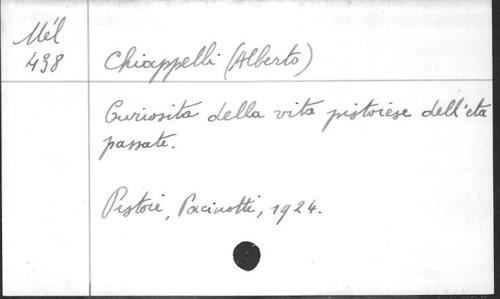 Mél
438
Chiappelli (Alberto)
Curiosita della vita pistoiese dell'eta
passate.
Pistoie, Pacinotti, 1924.